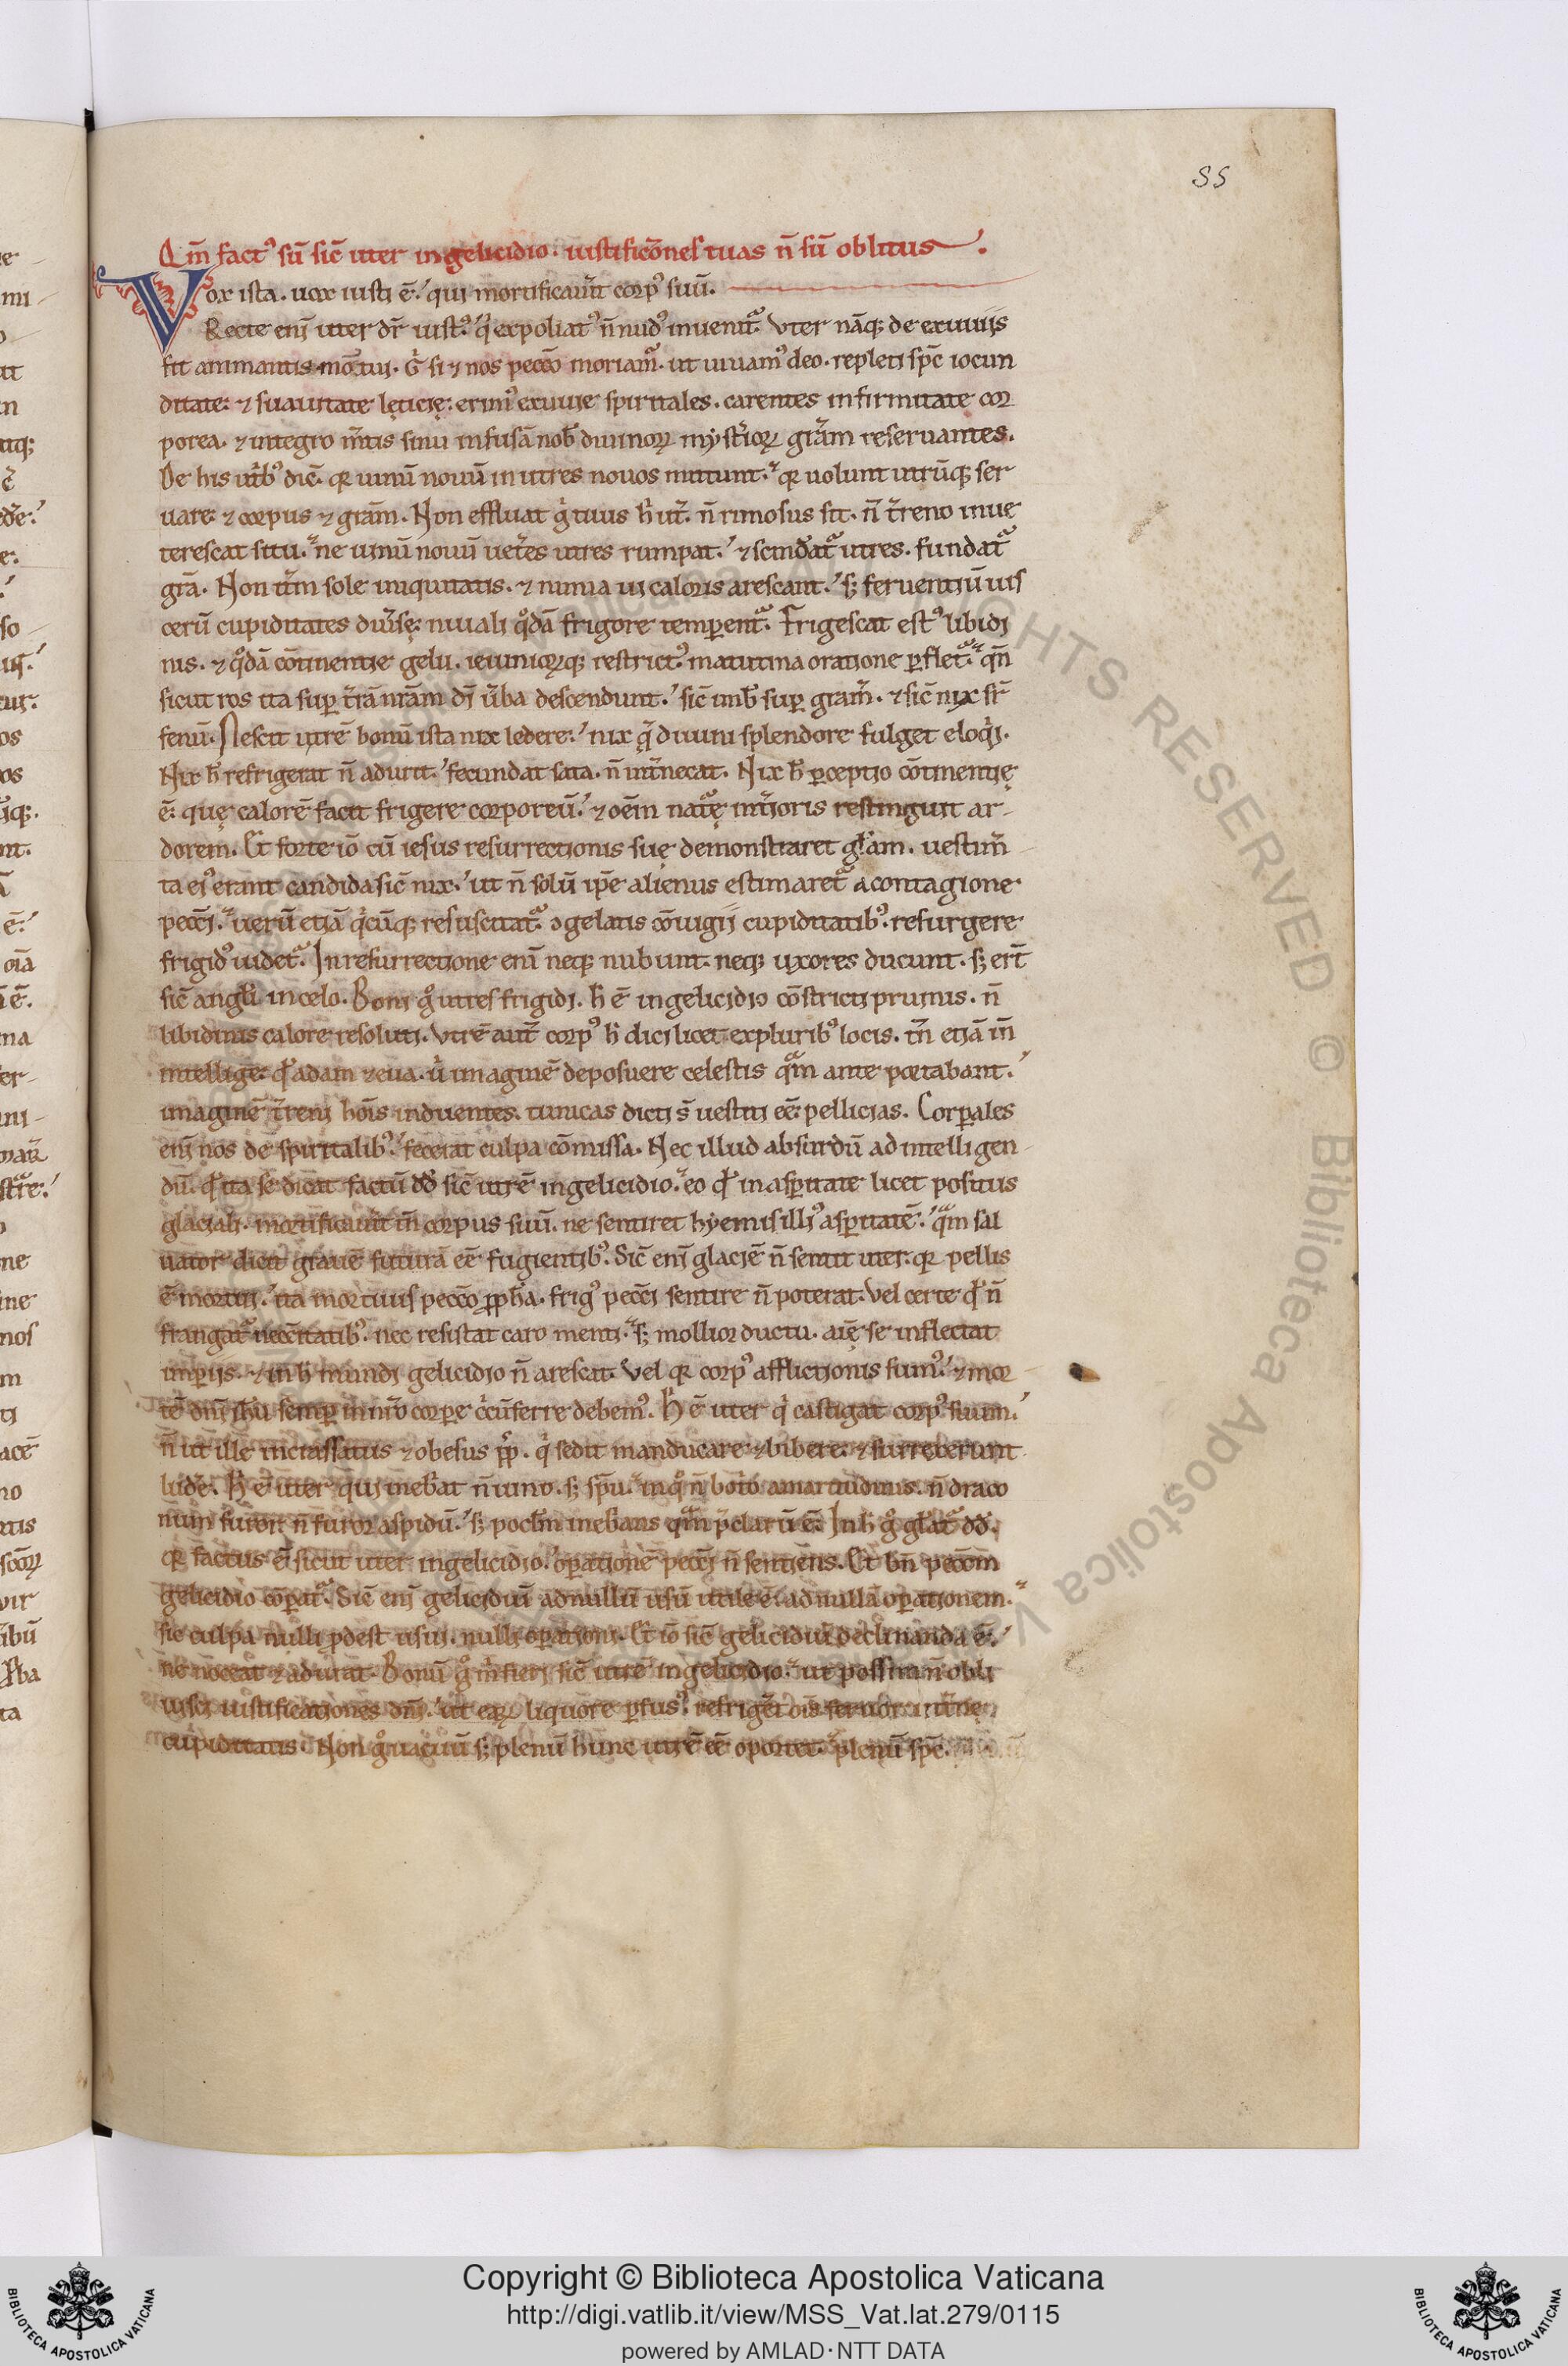 55
Qm̄ fact᷒ sū sic̄ uter in gelicidio. iustificōnes tuas n̄ sū oblitus.
Vox ista. uox iusti ē. qui mortificauit corp᷒ suū.
Recte enī uter dr̄ iust᷒. qͥ expoliat᷒ n̄ nud᷒ inuenit᷑. Vter nāq; de exuuiis
fit animantis mortui. gͥ si ⁊ nos pecc̄o moriam᷑. ut uiuam᷒ deo. repleti sp̄c iocun
ditate. ⁊ suauitate lęticię. erim᷒ exuuie spiritales. carentes infirmitate cor
porea. ⁊ integro m̄tis sinu infusā nob̄ diuinoꝝ mysterioꝝ gr̄am reseruantes.
De his utrib᷒ dic̄. qꝛ uinū nouū in utres nouos mittunt. qꝛ uolunt utrūq; ser
uare ⁊ corpus ⁊ grām. Non effluat gͥ tuus h̄ ut̄. n̄ rimosus sit. n̄ t̄reno inue
terescat situ. ne uinū nouū uet̄es utres rumpat. ⁊ scindat᷑ utres. fundat᷑
grā. Non tm̄ sole iniquitatis. ⁊ nimia ui caloris arescant. s; feruentiū uis
cerū cupiditates diu̅sę. niuali qͦdā frigore temperent᷑. Frigescat est᷒ libidi
nis. ⁊ qͦdā cōtinentie gelu. ieiunioꝝq; restrict᷒ matutina oratione ꝑflet᷑. qn̄
sicut ros ita suꝑ t̄rā nr̄am dī u̅ba descendunt. sic̄ imb̄ suꝑ gram̄. ⁊ sic̄ nix sr̄
fenū. Nescit utrē bonū ista nix ledere. nix q̄ diuini splendore fulget eloqͥi.
Nix h̄ refrigerat n̄ adurit. fecundat sata. n̄ int̄necat. Nix h̄ ꝑceptio cōtinentię
ē. quę calorē facit frigere corporeū. ⁊ oēm nat᷑ę int̄ioris restinguit ar-
dorem. Et forte iō cū iesus resurrectionis suę demonstraret gl̄am. uestim̄
ta ei᷒ erant candida sic̄ nix. ut n̄ solū ip̄e alienus estimaret᷑ a contagione
pecc̄i. uerū etiā qͥcūq; resuscitat᷑. ꝯgelatis cōiugii cupiditatib᷒. resurgere
frigid᷒ uidet᷑. In resurrectione enī neq; nubunt. neq; uxores ducunt. s; ert̄
sic̄ angl̄i in celo. Boni gͦ utres frigidi. h̄ ē in gelicidio cōstricti pruinis. n̄
libidinis calore resoluti. Vtrē aut̄ corp᷒ h̄ dici licet ex plurib᷒ locis. tn̄ etiā in̄
intellige. qd̄ adam ⁊ eua. u̅ imaginē deposuere celestis qᷓm ante portabant.
imaginē t̄reni hoīs induentes. tunicas dicti s̄ uestiti eē. pellicias. Corꝑales
enī nos de spiritalib᷒. fecerat culpa cōmissa. Nec illud absurdū ad intelligen
dū. qd̄ ita se dicit factū dd̄ sic̄ utrē in gelicidio. eo qd̄ in asꝑitate licet positus
glaciali. mortificauit in̄ corpus suū. ne sentiret hyemis illi᷒ asꝑitatē. qᷓm sal
uator dicit grauē futurā eē fugientib᷒. Sic̄ enī glaciē n̄ sentit uter. qꝛ pellis
ē mortui. ita mortuus pecc̄o ꝓph̄a. frig᷒ pecc̄i sentire n̄ poterat. Vel certe qd̄ n̄
frangat᷑ necc̄itatib᷒. nec resistat caro menti. s; mollior ductu. aīę se inflectat
imꝑiis. ⁊ in h̄ mundi gelicidio n̄ arescat. Vel qꝛ corp᷒ afflictionis sum᷒. ⁊ mor
tē dn̄i ih̄u semꝑ in nr̄o corꝑe cͥcūferre debem᷒. H̄ ē uter qͥ castigat corp᷒ suum.
n̄ ut ille incrassatus ⁊ obesus pp̄. qͥ sedit manducare ⁊ bibere. ⁊ surrexerunt
lude. H̄ ē uter qui ineb̄at n̄ uino. s; sp̄u. in qͦ n̄ botro amaritudinis. n̄ draco
num furor. n̄ furor aspidū. s; pocl̄m ineb̄ans qᷓm p̄clarū ē. In h̄ gͦ gl̄at᷑ dd̄.
qꝛ factus ē sicut uter in gelicidio. oꝑationē pecc̄i n̄ sentiens. Et bn̄ pecc̄m
gelicidio cōꝑat᷑. Sic̄ enī gelicidiū ad nullū usū utile ē. ad nullā oꝑationem.
sic culpa nulli ꝓdest usui. nulli oꝑationi. Et iō sic̄ gelicidiū declinanda ē.
ne noceat ⁊ adurat. Bonū gͦ m̄ fieri sic̄ utrē in gelicidio. ut possim n̄ obli
uisci iustificationes dn̄i. ut eaꝝ liquore ꝑfus᷒. refriget᷑ ois feruor int̄nę
cupiditatis. Non gͦ uacuū s; plenū hunc utrē eē oportet. plenū sp̄c.
Copyright © Biblioteca Apostolica Vaticana
http://digi.vatlib.it/view/MSS_Vat.lat.279/0115
powered by AMLAD·NTT DATA
BIBLIOTECA APOSTOLICA VATICANA
BIBLIOTECA APOSTOLICA VATICANA